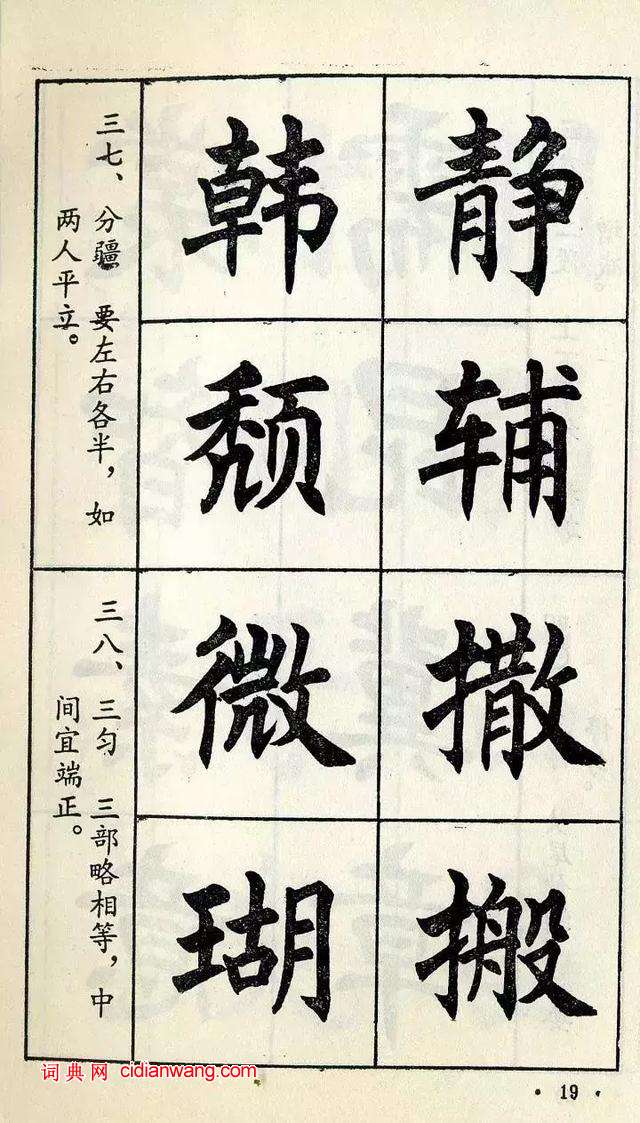 三七、分疆 要左右各半，如
两人平立。
韩 静
颓 辅
三八、三匀 三部略相等，中
间宜端正。
微 撒
瑚 搬
词典网 cidianwang.com
·19·